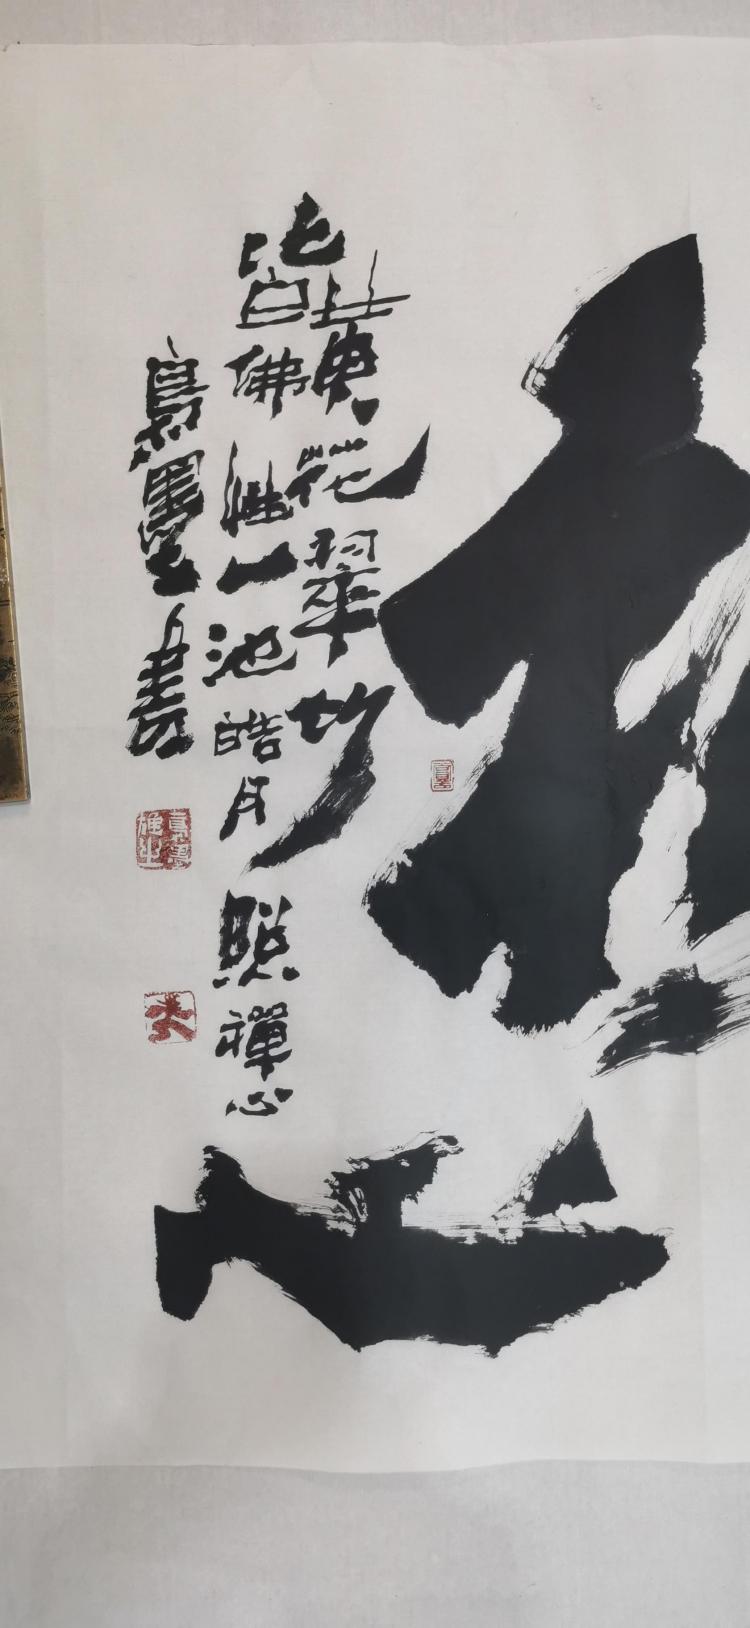 黄花翠竹
皆佛性一池皓月照禪心
墨書